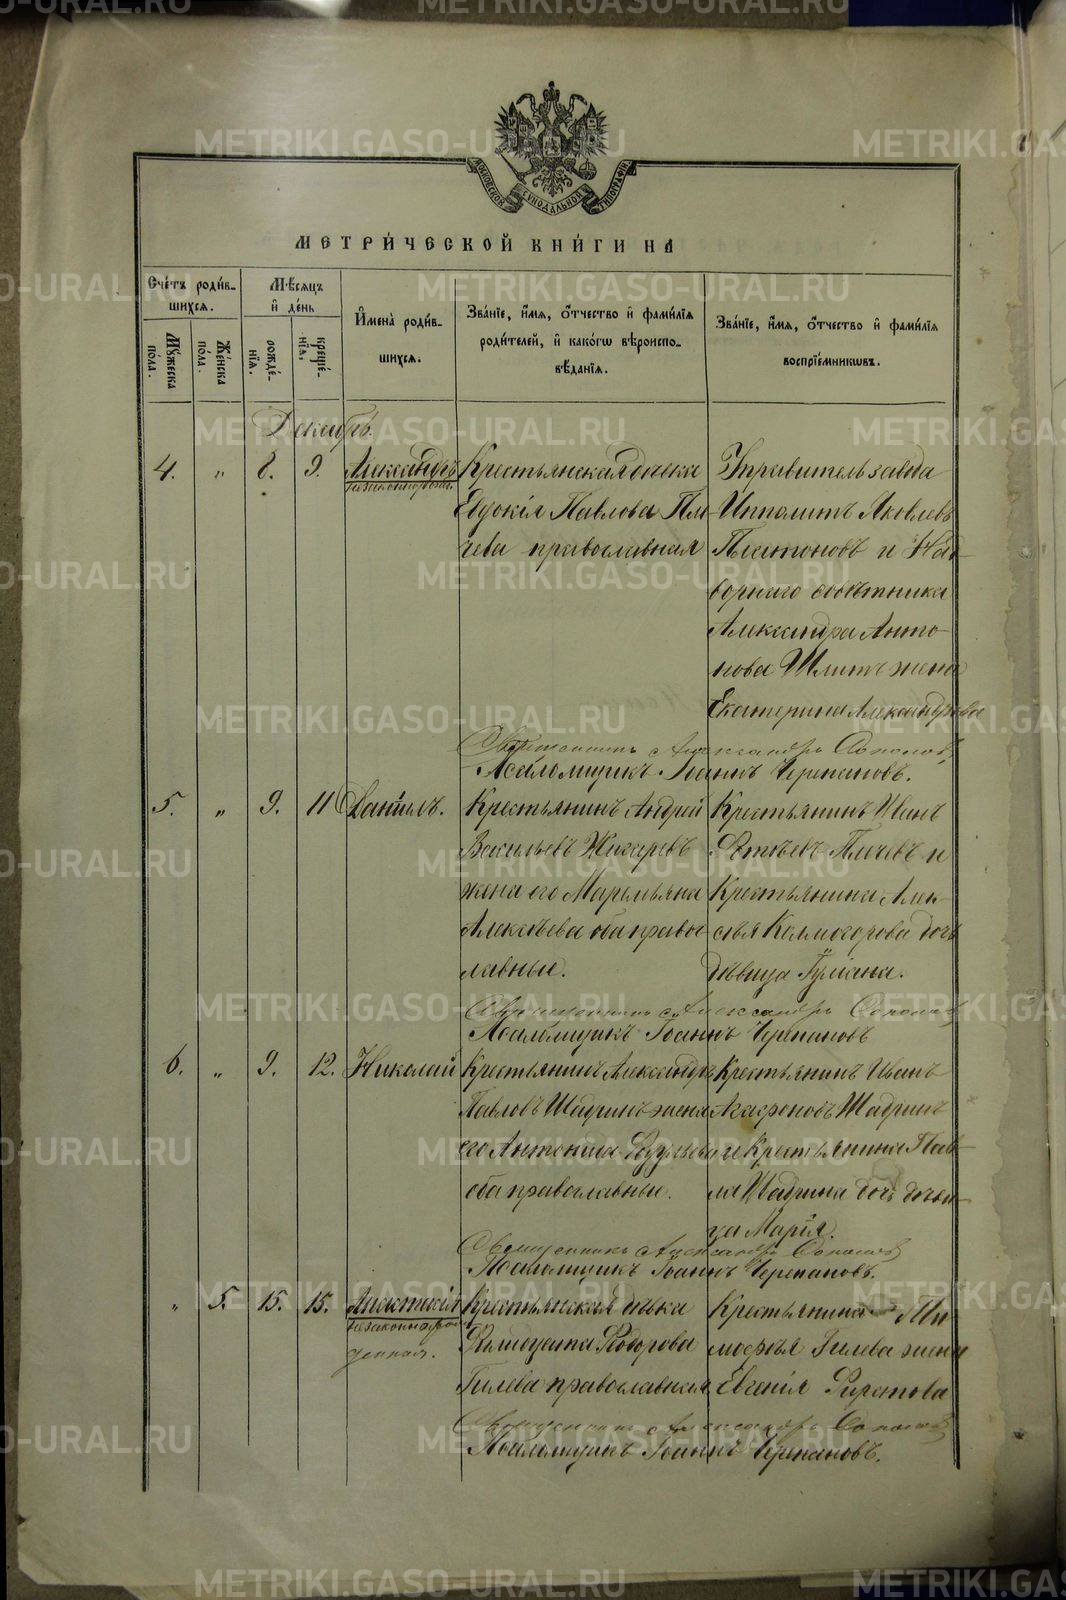 METRIKI.GASO-URAL.RU
МОСКОВСКОЙ СѴНОДАЛЬНОЙ ТИПОГРАФІИ
МЕТРИ́ЧЕСКОЙ КНИ́ГИ НА
Сче́тъ роди́в-
шихся.
Му́жеска по́ла.
Же́нска по́ла.
Мѣ́сяцъ
и де́нь
рожде́-нїя.
креще́-нїя.
Имена̀ роди́в-
шихся.
Зва́нїе, и́мя, о́тчество и фами́лїя
роди́телей, и како́гѡ вѣроиспо-
вѣ́данїя.
Зва́нїе, и́мя, о́тчество и фами́лїя
воспрїе́мникѡвъ.
Декабрь.
4. „ 8. 9. Александръ
незаконнорожд.
Крестьянская дѣвка
Евдокія Павлова Пли-
чева православная
Управитель завода
Ипполитъ Яковлевъ
Платоновъ и Над-
ворнаго совѣтника
Александра Анто-
нова Шлитъ жена
Екатерина Александрова
Священникъ Александръ
Псаломщикъ Іоаннъ Черепановъ.
5. „ 9. 11 Даніилъ.
Крестьянинъ Андрей
Васильевъ Жигаревъ
жена его Маремьяна
Алексѣева оба правос-
лавные.
Крестьянинъ Иванъ
Фотѣевъ Пличевъ и
Крестьянина Алек-
сѣя Колмогорова дочь
дѣвица Іуліана.
Священникъ Александръ
Псаломщикъ Іоаннъ Черепановъ
6. „ 9. 12. Николай
Крестьянинъ Александръ
Павловъ Шадринъ жена
его Антонина
оба православные.
Крестьянинъ Иванъ
Агафоновъ Шадринъ
и Крестьянина Пав-
ла Шадрина дочь дѣви-
ца Марія.
Священникъ Александръ
Псаломщикъ Іоаннъ Черепановъ.
„ 5. 15. 15. Анастасія
незаконнорож-
денная.
Крестьянская дѣвка
Ѳеодорова
Гилева православная
Крестьянина Ти-
моѳѣя Гилева жена
Евгенія
Священникъ Александръ
Псаломщикъ Іоаннъ Черепановъ.